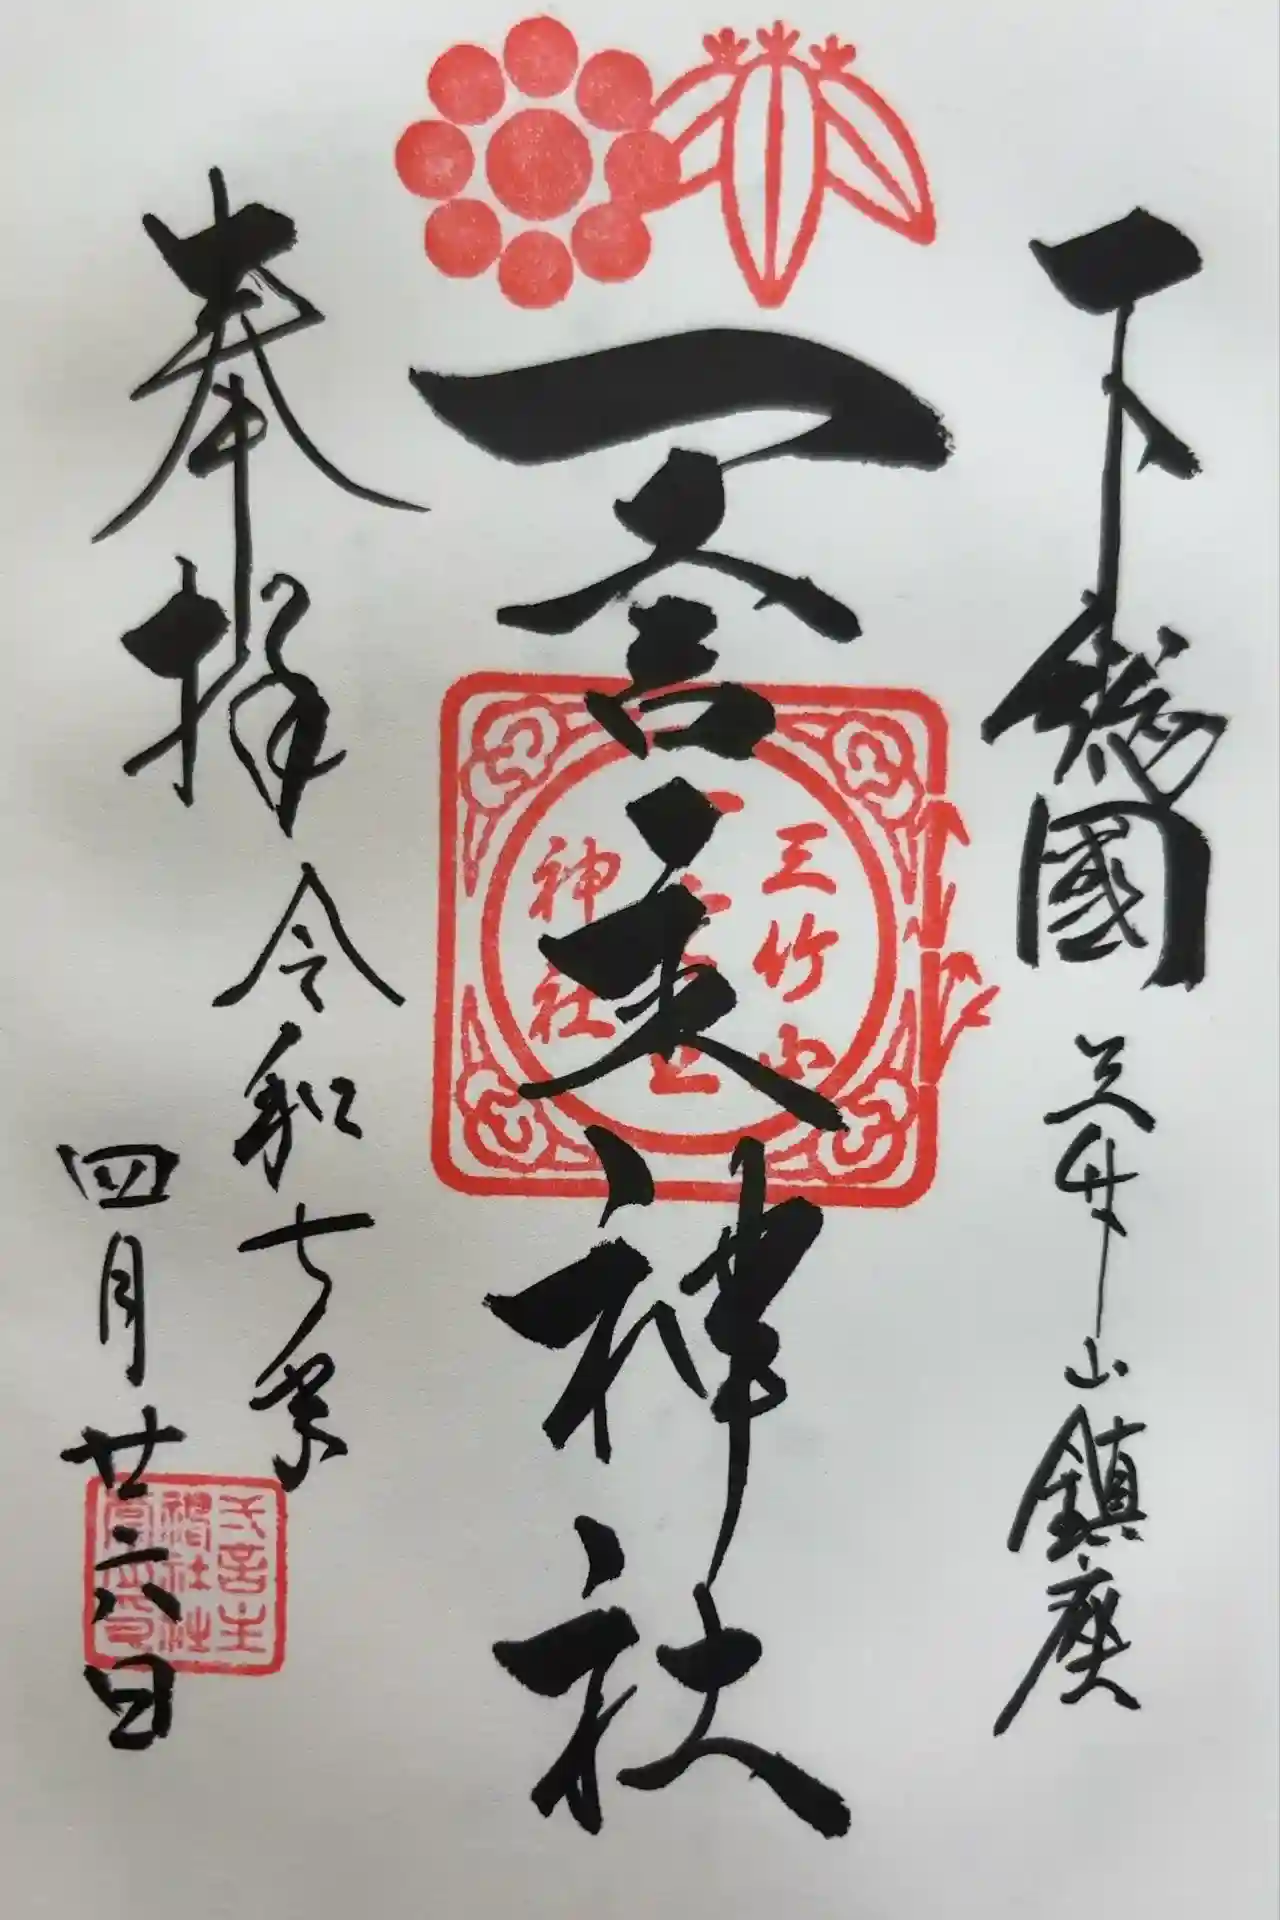 下総國 三竹山鎮座
一言主神社
奉拝 令和七年
四月廿六日
三竹山
一言主
神社